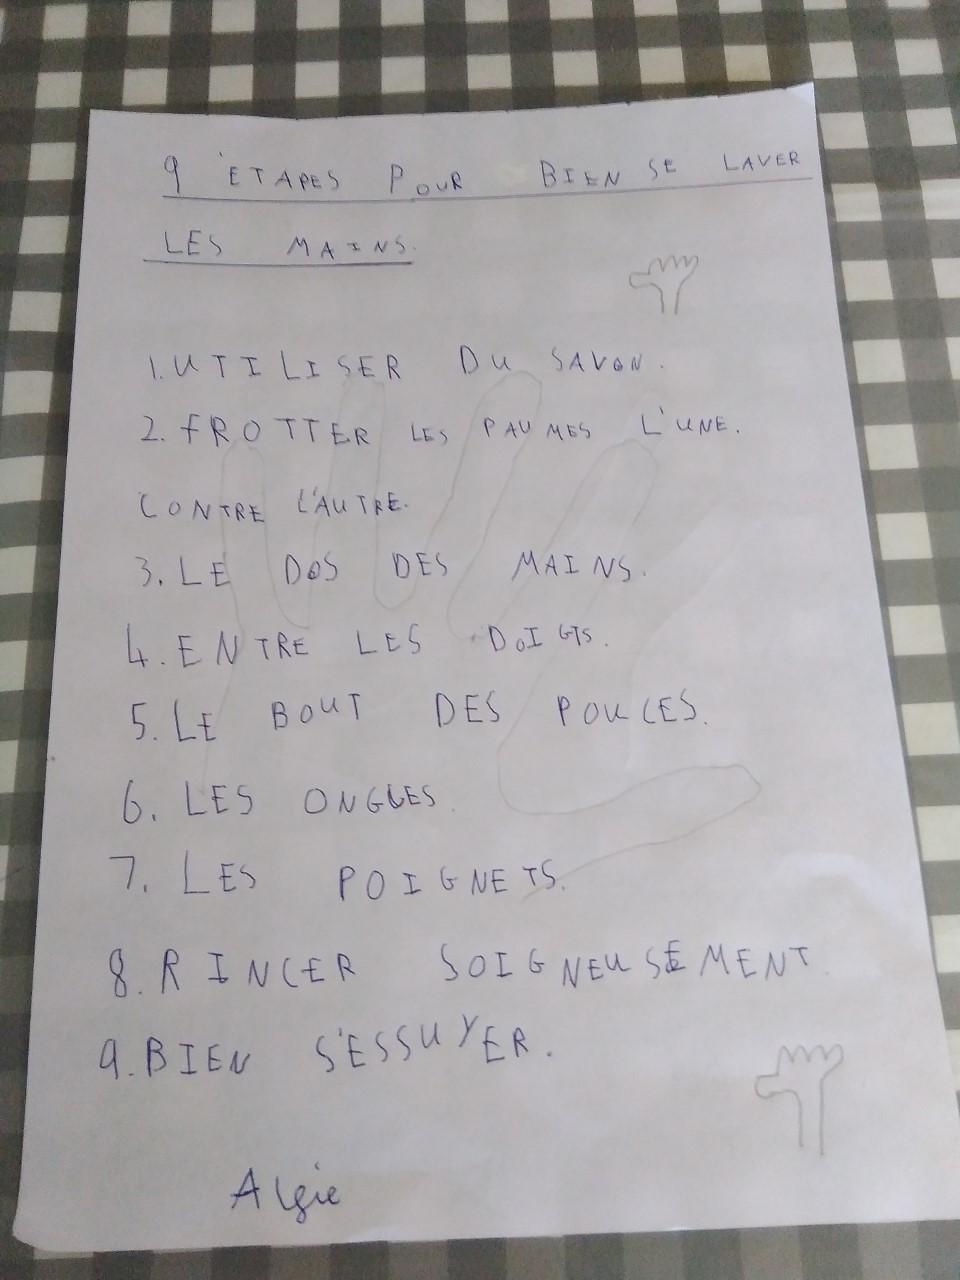 9 ÉTAPES POUR BIEN SE LAVER
LES MAINS.
1. UTILISER DU SAVON.
2. FROTTER LES PAUMES L'UNE.
CONTRE L'AUTRE.
3. LE DOS DES MAINS.
4. ENTRE LES DOIGTS.
5. LE BOUT DES POUCES.
6. LES ONGLES.
7. LES POIGNETS.
8. RINCER SOIGNEUSEMENT.
9. BIEN S'ESSUYER.
Algie